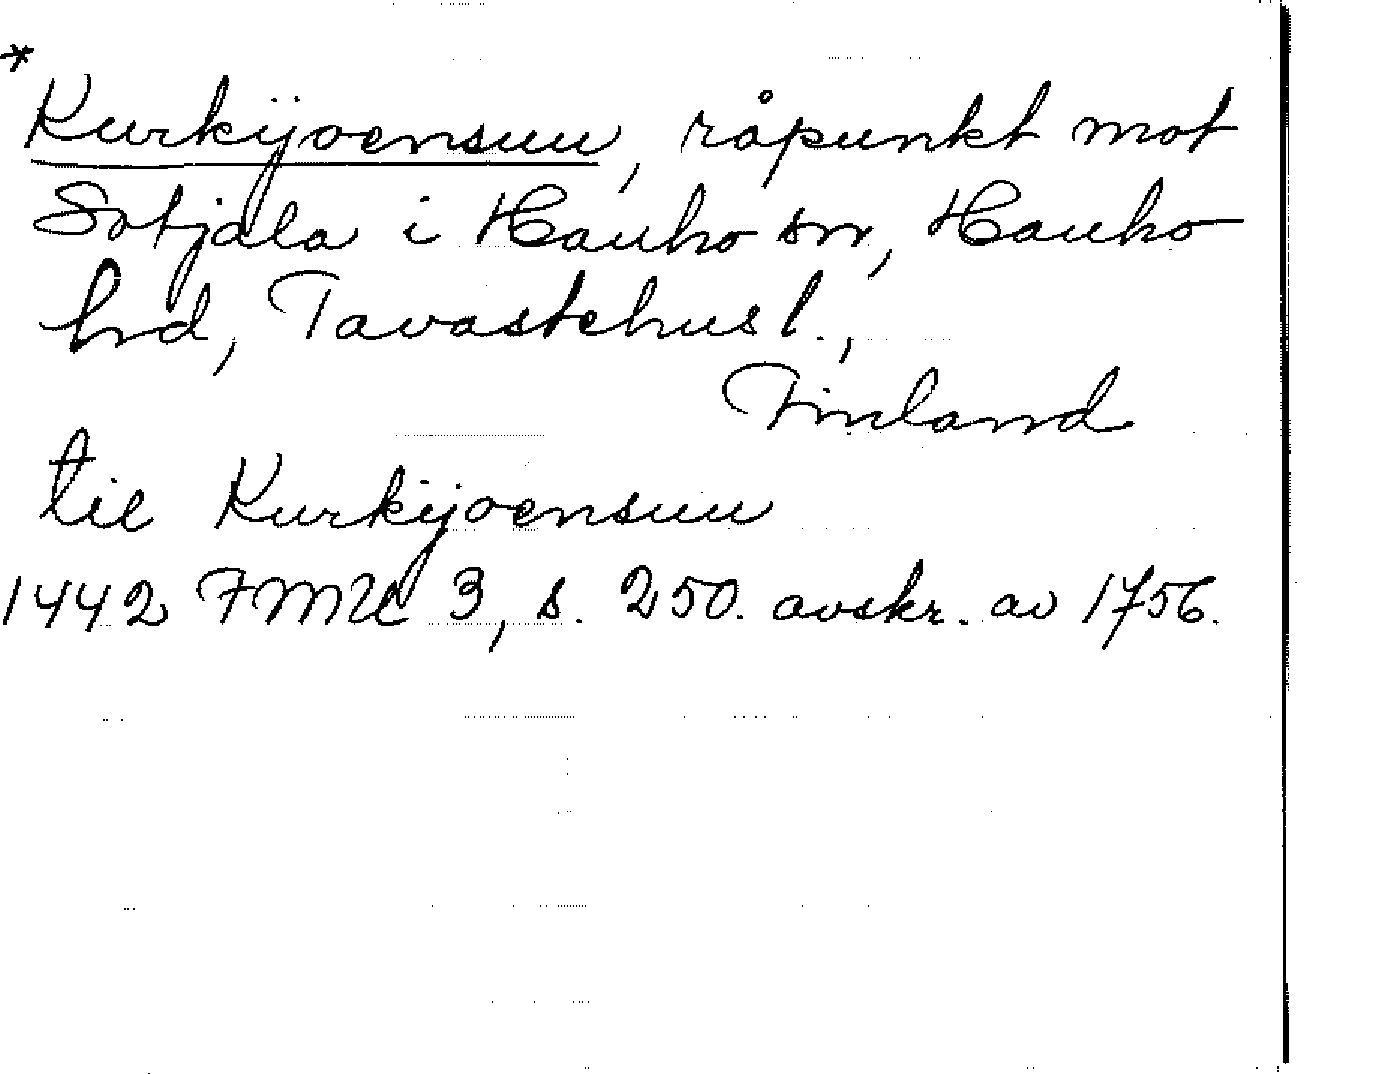 *
Kurkijoensuu, råpunkt mot
Sotjala i Hauho sn, Hauho
hd, Tavastehus l.,
Finland
til Kurkijoensuu
1442 FMU 3, s. 250. avskr. av 1756.